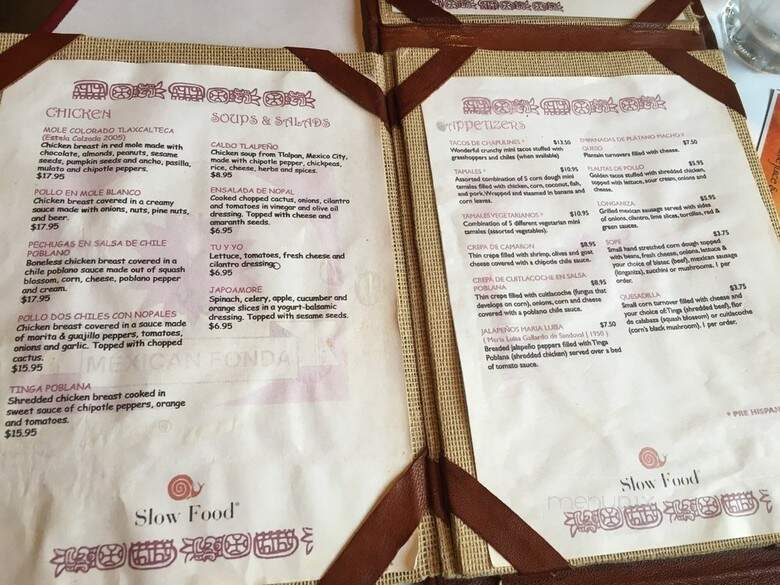 CHICKEN
MOLE COLORADO TLAXCALTECA
(Estela Calzada 2005)
Chicken breast in red mole made with
chocolate, almonds, peanuts, sesame
seeds, pumpkin seeds and ancho, pasilla,
mulato and chipotle peppers.
$17.95
POLLO EN MOLE BLANCO
Chicken breast covered in a creamy
sauce made with onions, nuts, pine nuts,
and beer.
$17.95
PECHUGAS EN SALSA DE CHILE
POBLANO
Boneless chicken breast covered in a
chile poblano sauce made out of squash
blossom, corn, cheese, poblano pepper
and cream.
$17.95
POLLO DOS CHILES CON NOPALES
Chicken breast covered in a sauce made
of morita & guajillo peppers, tomatoes,
onions and garlic. Topped with chopped
cactus.
$15.95
TINGA POBLANA
Shredded chicken breast cooked in
sweet sauce of chipotle peppers, orange
and tomatoes.
$15.95
SOUPS & SALADS
CALDO TLALPEÑO
Chicken soup from Tlalpan, Mexico City,
made with chipotle pepper, chickpeas,
rice, cheese, herbs and spices.
$8.95
ENSALADA DE NOPAL
Cooked chopped cactus, onions, cilantro
and tomatoes in vinegar and olive oil
dressing. Topped with cheese and
amaranth seeds.
$6.95
TU Y YO
Lettuce, tomatoes, fresh cheese and
cilantro dressing
$6.95
JAPOAMORE
Spinach, celery, apple, cucumber and
orange slices in a yogurt-balsamic
dressing. Topped with sesame seeds.
$6.95
MEXICAN FONDA
Slow Food®
APPETIZERS
TACOS DE CHAPULINES * $13.50
Wonderful crunchy mini tacos stuffed with
grasshoppers and chiles (when available)
TAMALES * $10.95
Assorted combination of 5 corn dough mini
tamales filled with chicken, corn, coconut, fish,
and pork. Wrapped and steamed in banana and
corn leaves.
TAMALES VEGETARIANOS * $10.95
Combination of 5 different vegetarian mini
tamales (assorted vegetables).
CREPA DE CAMARON $8.95
Thin crepe filled with shrimp, olives and goat
cheese covered with a chipotle chile sauce.
CREPA DE CUITLACOCHE EN SALSA
POBLANA $8.95
Thin crepe filled with cuitlacoche (fungus that
develops on corn), onions, corn and cheese
covered with a poblano chile sauce.
JALAPEÑOS MARIA LUISA $7.50
( Maria Luisa Gallardo de Sandoval | 1950 )
Breaded jalapeño peppers filled with Tinga
Poblana (shredded chicken) served over a bed
of tomato sauce.
EMPANADAS DE PLATANO MACHO Y
QUESO $7.50
Plantain turnovers filled with cheese.
FLAUTAS DE POLLO $5.95
Golden tacos stuffed with shredded chicken,
topped with lettuce, sour cream, onions and
cheese.
LONGANIZA $5.95
Grilled mexican sausage served with sides
of onions, cilantro, lime slices, tortillas, red &
green sauces.
SOPE $3.75
Small hand stretched corn dough topped
with beans, fresh cheese, onions, lettuce &
your choice of bistec (beef), mexican sausage
(longaniza), zucchini or mushrooms. 1 per
order.
QUESADILLA $3.75
Small corn turnover filled with cheese and
your choice of: Tinga (shredded beef), flor
de calabaza (squash blossom) or cuitlacoche
(corn's black mushroom). 1 per order.
* PRE HISPAN
Slow Food®
menupix